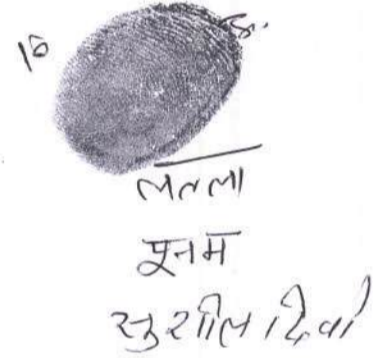 16
लतला
पूनम
सुशीला देवी